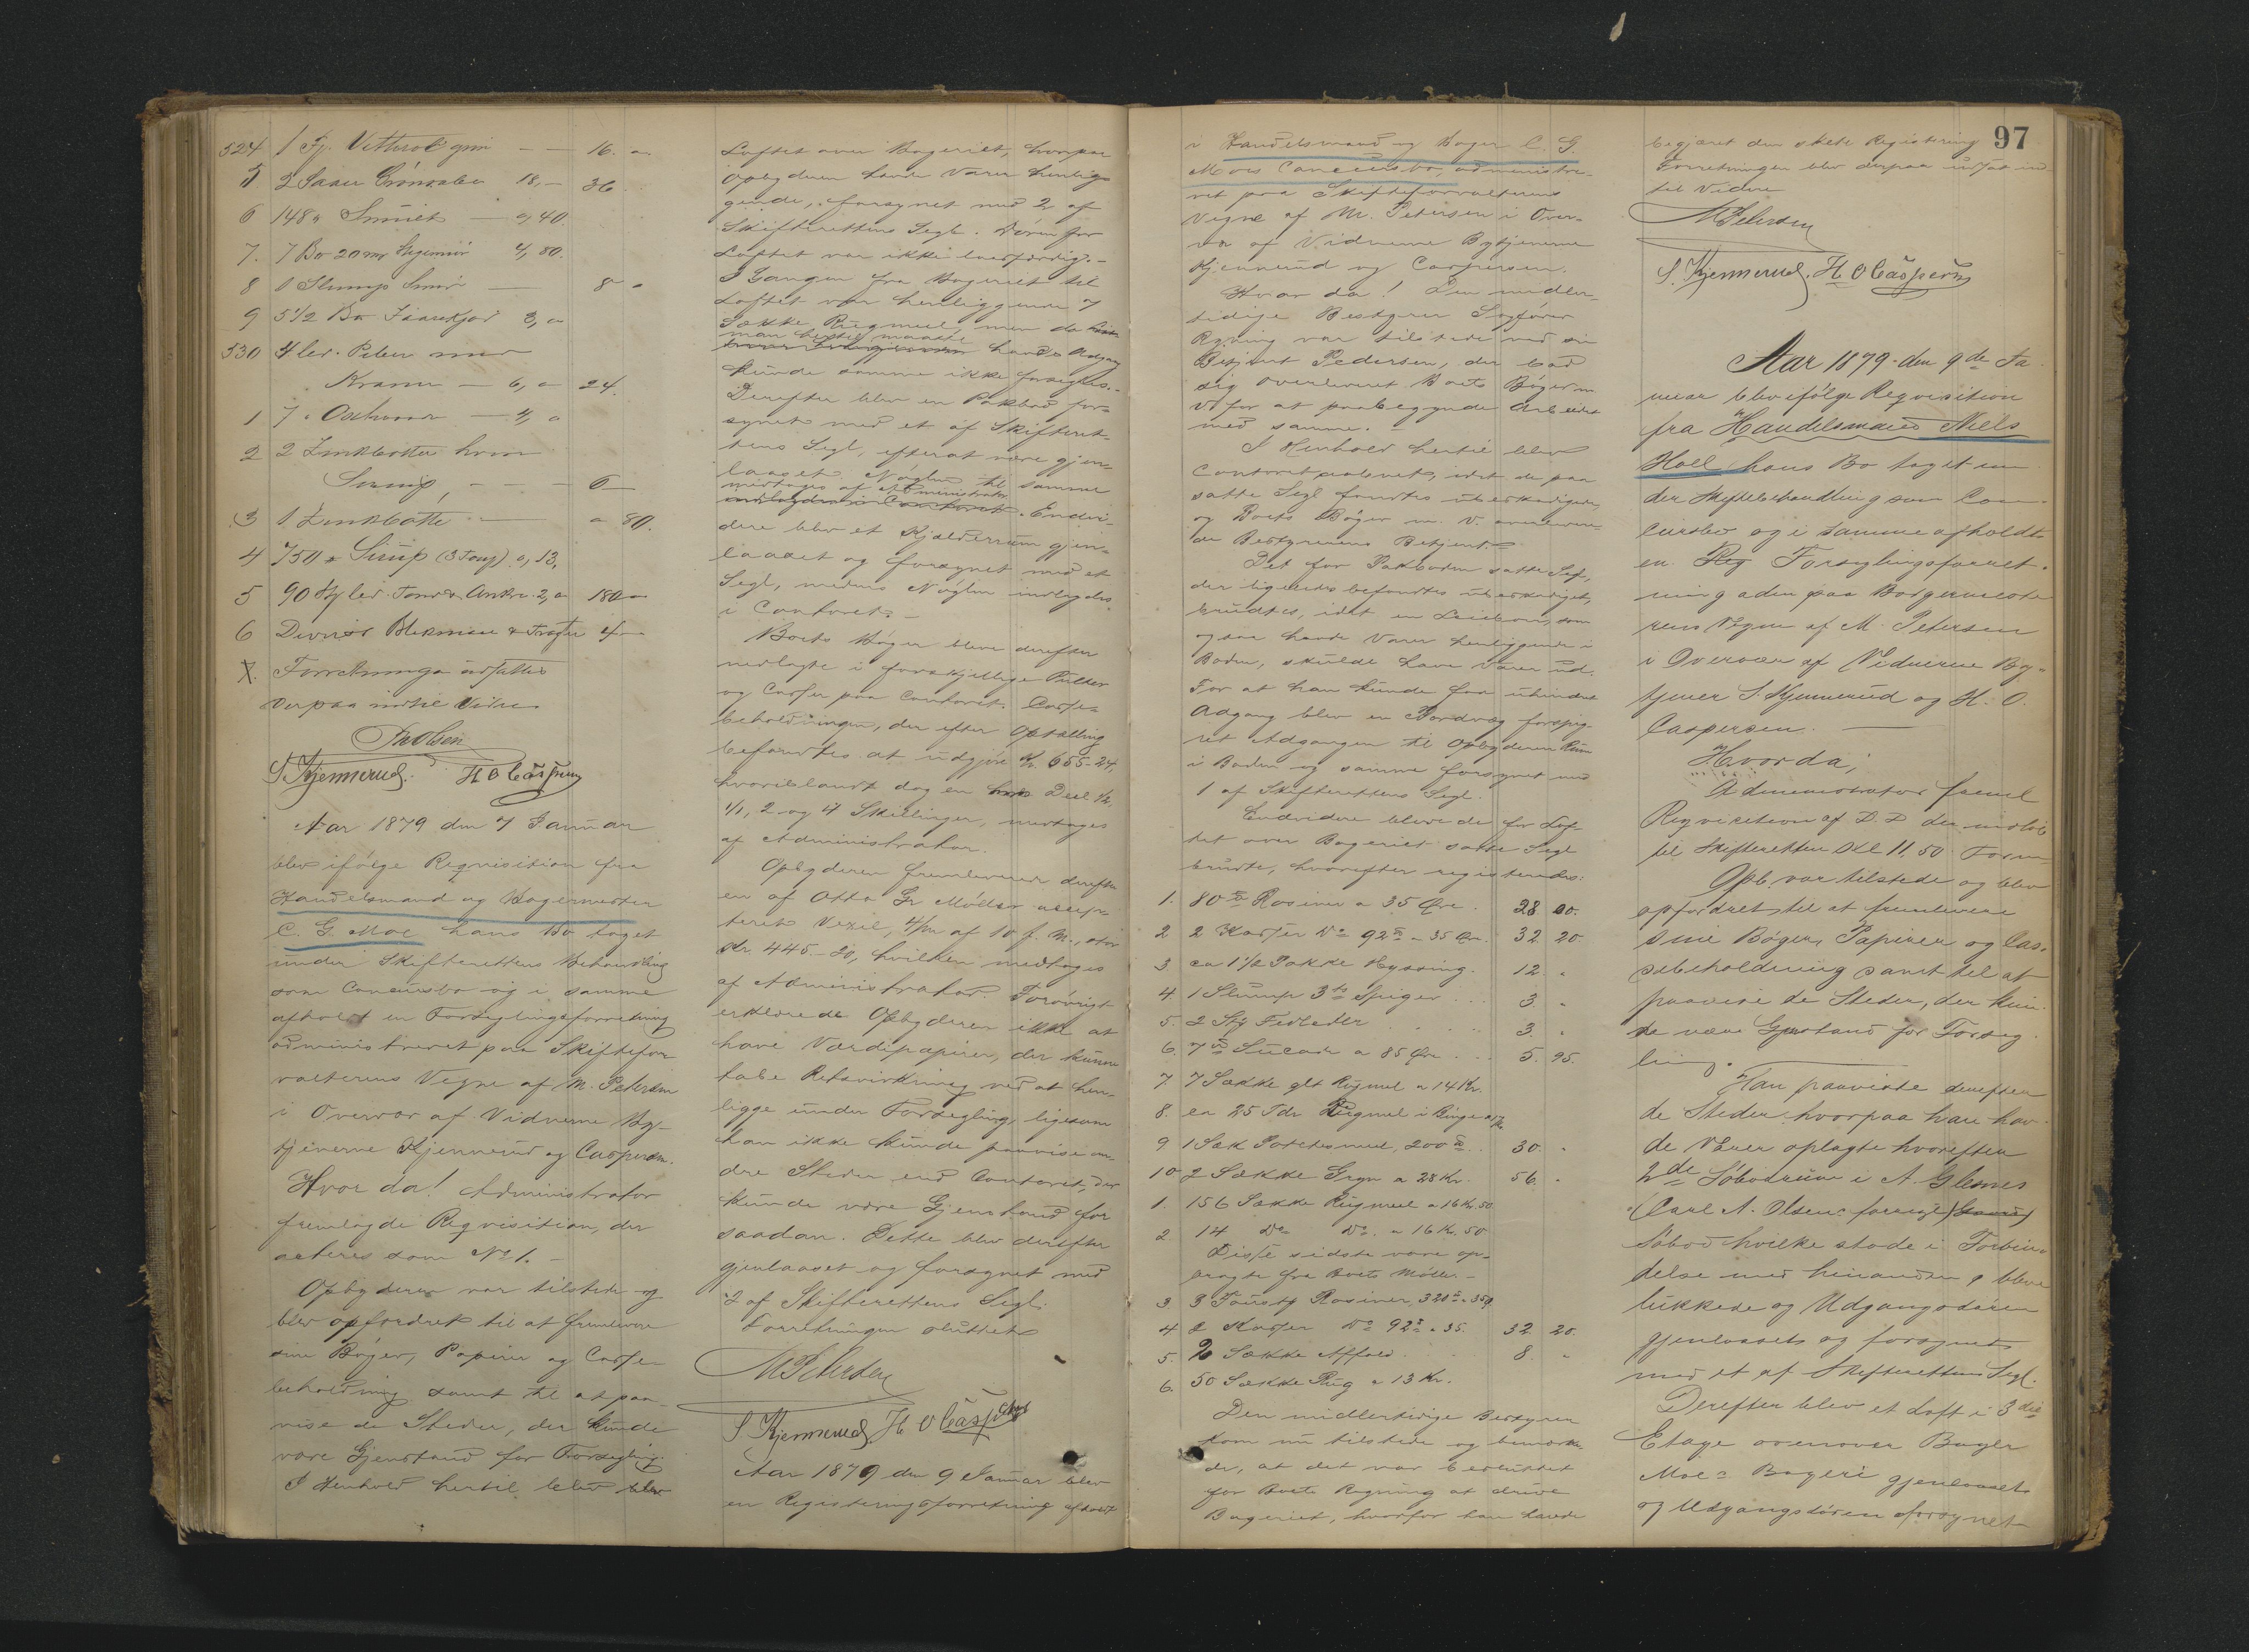 524 1 Fj. Vitterol grin — — 16. "
5 2 Saaer Grönsaler 18,— 36.
6 148 " Smult — " 40.
7. 7 Bo 20 mr 4, 80.
8 1 Slump Smör — 8 "
9 5 1/2 Bo Faarekjød 3, "
530 4 lev. Peler med
Kraner — 6, " 24.
1 7 " — 4, "
2 2 Zinkbøtter hvori
Sirup, — — — 6 —
3 1 Zinkbøtte — " 80.
4 750 " Sirup (3 Tønd) " 13,
5 90 Sty led. Tønder & Ankre. 2, " 180 —
6 Diverse & Tragter 4 —
X. Forretningen udsattes
derpaa indtil Videre
Th Olsen
S. Kjennerud. H O Caspersen
Aar 1879 den 7 Januar
blev ifølge Reqvisition fra
Handelsmand og Bagermester
C. G. Moe hans Bo taget
under Skifterettens Behandling
som Concursbo og i samme
afholdt en Forseglingsforretning
administreret paa Skiftefor-
valterens Vegne af M. Petersen
i Overvær af Vidnerne By-
tjenerne Kjennerud og Caspersen.
Hvor da! Administrator
fremlagde Reqvisition, der
acteres som No 1. —
Opbyderen var tilstede og
blev opfordret til at fremlevere
sine Bøger, Papirer og Casse-
beholdning samt til at paa-
vise de Steder, der kunde
være Gjenstand for Forsegling.
I Henhold hertil blev blev
Loftet over Bageriet, hvorpaa
Opbyderen havde Varer henlig-
gende, forsynet med 2 af
Skifterettens Segl. Døren for
Loftet var ikke laasfærdig. —
I Gangen fra Bageriet til
Loftet var henliggende 7
Sække Rugmeel, men da
man hertil maatte
havde Adgang
kunde samme ikke forsegles. —
Derefter blev en Pakbod for-
synet med et af Skifteret-
tens Segl, efterat være gjen-
laaset. Nøglen til samme
medtages af Administrator
indlagdes i Contoret. Endvi-
dere blev et Kjælderrum gjen-
laaset og forsynet med et
Segl, medens Nøglen indlagdes
i Contoret. —
Boets Bøger bleve derefter
nedlagte i forskjellige Pulter
og Casser paa Contoret. Casse-
beholdningen, der efter Optælling
befandtes at udgjøre Kr. 655-24,
hvoriblandt dog en Deel 1/2,
1/1, 2 og 4 Skillinger, medtages
af Administrator.
Opbyderen fremleverede derefter
en af Otto Gr. Møller accep-
teret Vexel, af 10 f. M., stor
Kr. 445-20, hvilken medtages
af Administrator. Forøvrigt
erklærede Opbyderen ikke at
have Værdipapirer, der kunne
tabe Retsvirkning ved at hen-
ligge under Forsegling, ligesom
han ikke kunde paavise an-
dre Steder end Contoret, der
kunde være Gjenstand for
saadan. Dette blev derefter
gjenlaaset og forsynet med
2 af Skifterettens Segl.
Forretningen sluttet
M Petersen
S. Kjennerud. H O Caspersen
Aar 1879 den 9 Januar blev
en Registeringsforretning afholdt
97
i Handelsmand og Bager C. G.
Moes Concursbo, administre-
ret paa Skifteforvalterens
Vegne af M. Petersen i Over-
vær af Vidnerne Bytjenerne
Kjennerud og Caspersen.
Hvor da! Den midler-
tidige Bestyrer Sagfører
Rynning var tilstede ved sin
Betjent Pedersen, der bad
sig overleveret Boets Bøger m
v. for at paabegynde Arbeidet
med samme.
I Henhold hertil blev
Contoret aabnet, idet de paa-
satte Segl fandtes ubeskadigede,
og Boets Bøger m. v. overlevere-
de Bestyrerens Betjent. —
Det for Pakboden satte Segl,
der ligeledes befandtes ubeskadiget,
brudtes, idet en Leieboer, som
ogsaa havde Varer henliggende i
Boden, skulde have Varer ud.
For at han kunde faa uhindret
Adgang blev en Bordvæg forspig-
ret Adgangen til Opbyderens Rum
i Boden og samme forsynet med
1 af Skifterettens Segl.
Endvidere bleve de for Lof-
tet over Bageriet satte Segl
brudte, hvorefter registeredes:
1. 80 ℔ Rosiner a 35 Øre. 28 00.
2 2 Kasser Do 92 ℔ a 35 Øre. 32 20.
3 ca 1 1/2 Pakke Hyssing. 12. "
4. 1 Slump 3 Spiger . . . 3. "
5. 2 Sty Fedleder . . . . 3. "
6. 7 ℔ Sucade a 85 Øre . . . 5. 95.
7 7 Sække glt Rugmel a 14 Kr.
8. ca 25 Tdr Rugmel i Binge a
9 1 Sæk Potetesmeel, 200 ℔ . . 30. "
10 2 Sække Gryn a 28 Kr. 56. "
1. 156 Sække Rugmeel a 16 Kr. 50
2 14 Do Do. a 16 Kr. 50
Disse sidste vare op-
bragte fra Boets Møller —
3. 3 Fustg Rosiner, 320 ℔ a 35 Ø
4 2 Kasser Do 92 ℔ a 35. 32. 20.
5. 2 Sække Affald . . . 8. "
6. 50 Sække Rug a 13 Kr.
Den midlertidige Bestyrer
kom nu tilstede og bemærke-
de, at det var besluttet
for Boets Regning at drive
Bageriet, hvorfor han havde
begjæret den skete Registering
Forretningen blev derpaa udsat ind-
til Videre
M Petersen
S. Kjennerud. H O Caspersen
Aar 1879 den 9de Ja
nuar blev ifølge Reqvisition
fra Handelsmand Niels
Holl hans Bo taget un-
der Skiftebehandling som Con-
cursbo og i samme afholdt
en Reg Forseglingsforret-
ning adm paa Borgermeste
rens Vegne af M. Petersen
i Overvær af Vidnerne By-
tjener S. Kjennerud og H. O.
Caspersen. —
Hvor da;
Administrator freml
Reqvisition af D. D der indløb
til Skifteretten Kl 11,50 Form
Opb. var tilstede og blev
opfordret til at fremlevere
sine Bøger, Papirer og Cas-
sebeholdning samt til at
paavise de Steder, der kun-
de være Gjenstand for Forseg
ling.
Han paaviste derefter
de Steder hvorpaa han hav-
de Varer oplagte hvorefter
2de Søbodrum i A. Glemes
(Carl A. Olsens forrige)
Søbod hvilke stode i Forbin-
delse med hinanden, bleve
lukkede og Udgangsdøren
gjenlaaset og forsynet
med et af Skifterettens Segl.
Derefter blev et Loft i 3die
Etage ovenover Bager
Moes Bageri gjenlaaset
og Udgangsdøren forsynet